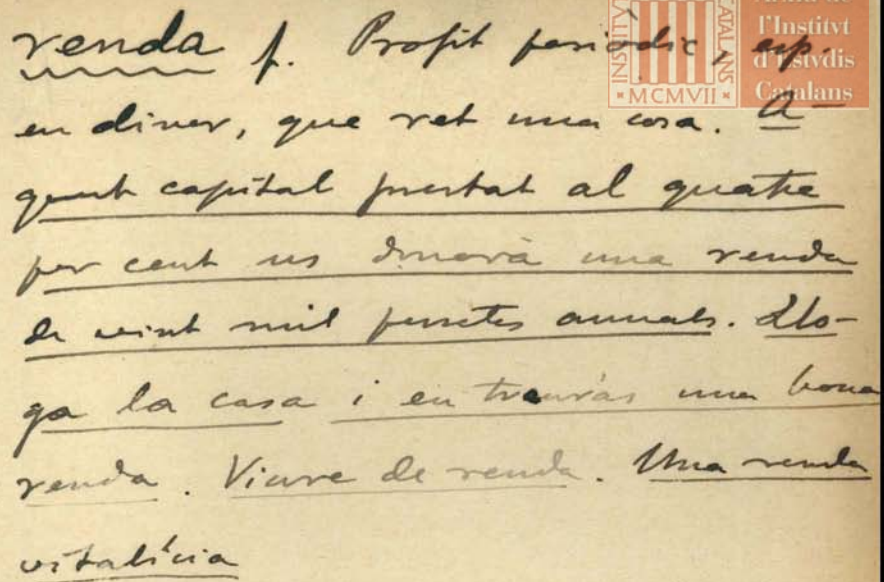 renda f. Profit periòdic, esp.
en diner, que ret una cosa. A-
quest capital prestat al quatre
per cent us donarà una renda
de vint mil pessetes annals. Llo-
ga la casa i en trauràs una bona
renda. Viure de renda. Una renda
vitalícia
INSTITVT
CATALANS
MCMVII
l'Institvt
d'Estvdis
Catalans